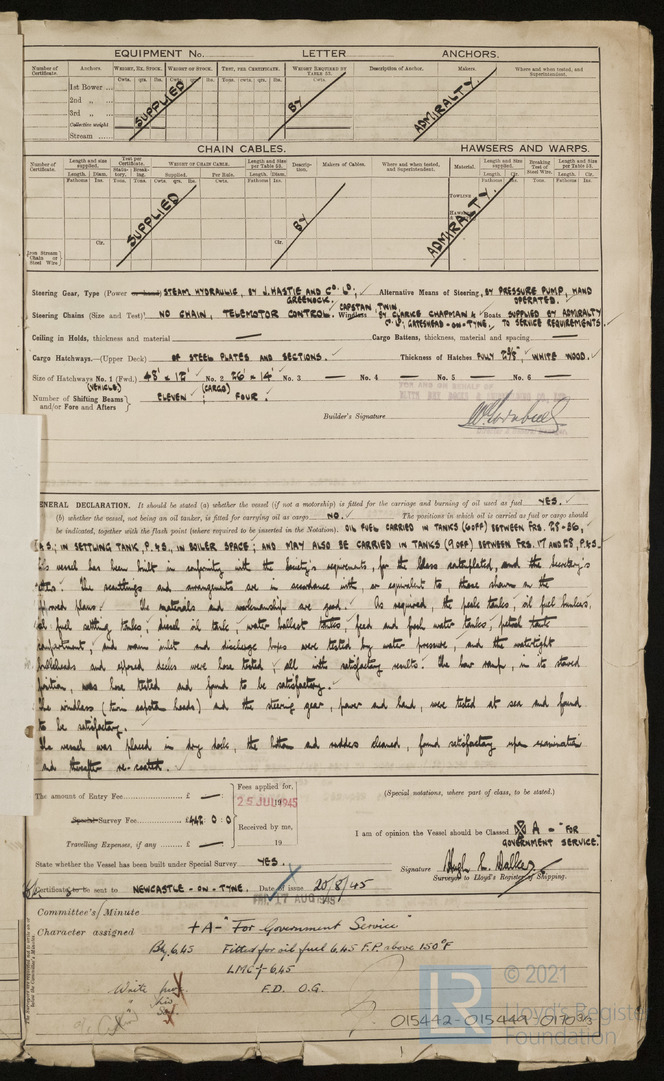 EQUIPMENT No. LETTER ANCHORS.
Number of Certificate. Anchors. WEIGHT, EX. STOCK. WEIGHT OF STOCK. TEST, PER CERTIFICATE. WEIGHT REQUIRED BY TABLE 53. Description of Anchor. Makers. Where and when tested, and Superintendent.
Cwts. qrs. lbs. Cwts. qrs. lbs. Tons. cwts. qrs. lbs. Cwts.
1st Bower ...
2nd „ ...
3rd „ ...
Collective weight
Stream ......
SUPPLIED BY ADMIRALTY.
CHAIN CABLES. HAWSERS AND WARPS.
Number of Certificate. Length and size supplied. Test per Certificate. WEIGHT OF CHAIN CABLE. Length and Size per Table 53. Description. Makers of Cables. Where and when tested, and Superintendent. Material. Length and Size supplied. Breaking Test of Steel Wire. Length and Size per Table 53.
Length. Diam. Statutory. Breaking. Supplied. Per Rule. Length. Diam. Length. Cir. Length. Cir.
Fathoms Ins. Tons. Tons. Cwts. qrs. lbs. Cwts. Fathoms Ins. Fathoms Ins. Tons. Fathoms Ins.
TOWLINE
SUPPLIED BY ADMIRALTY.
Iron Stream Chain or Steel Wire Cir. Cir.
Steering Gear, Type (Power or hand) STEAM HYDRAULIC, BY J. HASTIE AND CO. LD., GREENOCK. Alternative Means of Steering, BY PRESSURE PUMP, HAND OPERATED.
Steering Chains (Size and Test) NO CHAIN, TELEMOTOR CONTROL. Windlass CAPSTAN, TWIN BY CLARKE CHAPMAN & CO. LD., GATESHEAD-ON-TYNE. Boats SUPPLIED BY ADMIRALTY TO SERVICE REQUIREMENTS.
Ceiling in Holds, thickness and material — Cargo Battens, thickness, material and spacing —
Cargo Hatchways.—(Upper Deck) OF STEEL PLATES AND SECTIONS. Thickness of Hatches FULLY 2⅜", WHITE WOOD.
Size of Hatchways No. 1 (Fwd.) 48' x 12' No. 2 26' x 14' No. 3 — No. 4 — No. 5 — No. 6 —
(VEHICLE) (CARGO)
Number of Shifting Beams and/or Fore and Afters ELEVEN ; FOUR.
FOR AND ON BEHALF OF
Builder's Signature
GENERAL DECLARATION. It should be stated (a) whether the vessel (if not a motorship) is fitted for the carriage and burning of oil used as fuel YES.
(b) whether the vessel, not being an oil tanker, is fitted for carrying oil as cargo NO. The positions in which oil is carried as fuel or cargo should
be indicated, together with the flash point (where required to be inserted in the Notation). OIL FUEL CARRIED IN TANKS (6 OFF) BETWEEN FRS. 28-86,
&S.; IN SETTLING TANK, P.&S., IN BOILER SPACE; AND MAY ALSO BE CARRIED IN TANKS (9 OFF) BETWEEN FRS. 17 AND 28, P.&S.
vessel has been built in conformity with the Society's requirements, for the Class contemplated, and the Secretary's
The scantlings and arrangements are in accordance with, or equivalent to those shown on the
plans. The materials and workmanship are good. As required, the peak tanks, oil fuel bunkers,
fuel settling tanks, diesel oil tank, water ballast tanks, feed and fresh water tanks, petrol tank
compartment, and main inlet and discharge pipes were tested by water pressure, and the watertight
bulkheads and exposed decks were hose tested, all with satisfactory results. The bow ramp, in its stowed
position, was hose tested and found to be satisfactory.
The windlass (twin capstan heads) and the steering gear, power and hand, were tested at sea and found
to be satisfactory.
The vessel was placed in dry dock, the bottom and rudders cleaned, found satisfactory upon examination
and thereafter re-coated.
The amount of Entry Fee £ — Fees applied for, 25 JUL 1945 (Special notations, where part of class, to be stated.)
Special Survey Fee £442 : 0 : 0 Received by me,
Travelling Expenses, if any £ — 19 I am of opinion the Vessel should be Classed A – "FOR GOVERNMENT SERVICE."
State whether the Vessel has been built under Special Survey YES. Signature
Surveyor to Lloyd's Register of Shipping.
Certificate to be sent to NEWCASTLE-ON-TYNE. Date of issue 20/8/45
FRI. 17 AUG 1945
Committee's Minute
Character assigned +A – "For Government Service"
6.45 Fitted for oil fuel 6.45 F.P. above 150°F
LMC 6.45
F.D. O.G.
Write
015442-015449-0170 3/3
LR © 2021 Lloyd's Register Foundation